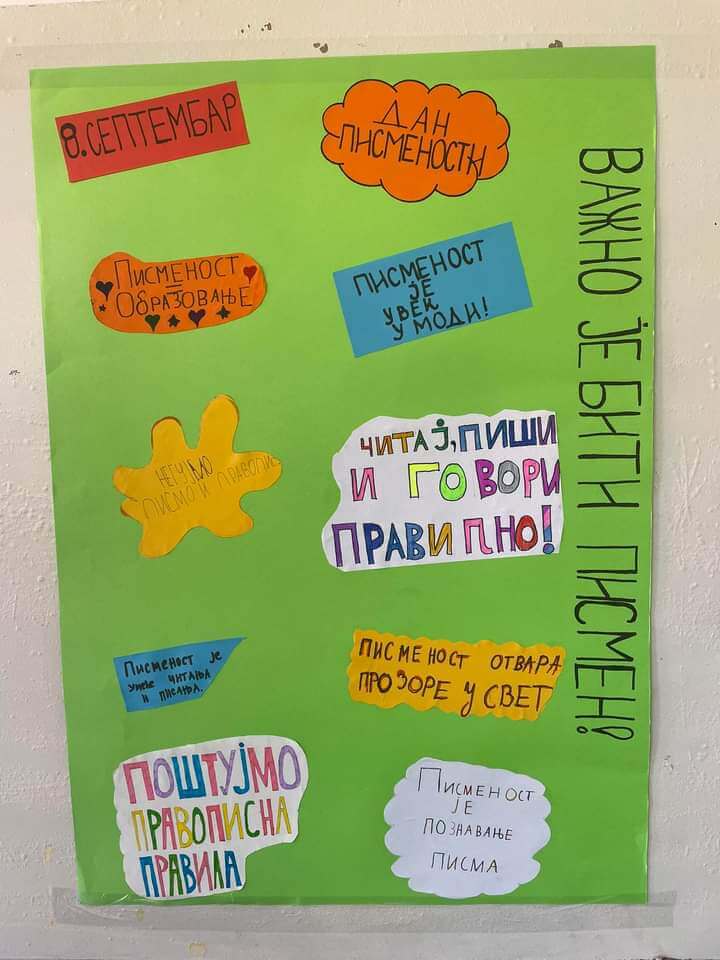 8. СЕПТЕМБАР
ДАН
ПИСМЕНОСТИ
ПИСМЕНОСТ
=
ОБРАЗОВАЊЕ
ПИСМЕНОСТ
ЈЕ
УВЕК
У МОДИ!
НЕГУЈМО
ПИСМО И ПРАВОПИС
ЧИТАЈ, ПИШИ
И ГОВОРИ
ПРАВИЛНО!
Писменост је
умеће читања
и писања.
ПИСМЕНОСТ ОТВАРА
ПРОЗОРЕ У СВЕТ
ПОШТУЈМО
ПРАВОПИСНА
ПРАВИЛА
ПИСМЕНОСТ
ЈЕ
ПОЗНАВАЊЕ
ПИСМА
ВАЖНО ЈЕ БИТИ ПИСМЕН!